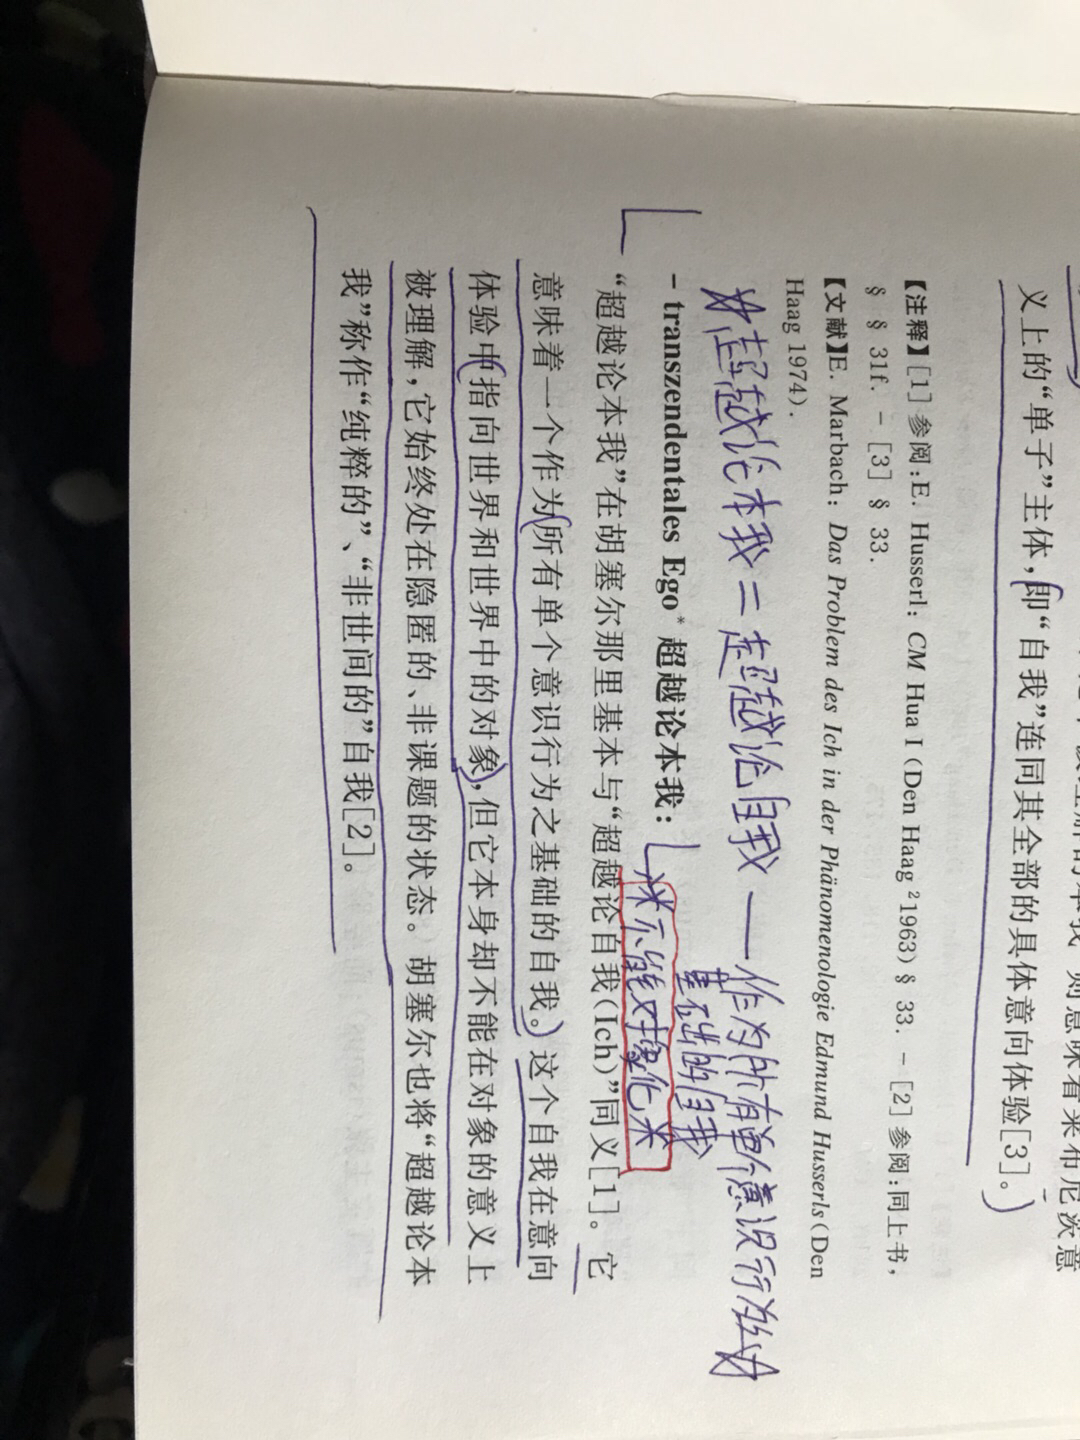 义上的“单子”主体，即“自我”连同其全部的具体意向体验[3]。)
【注释】[1]参阅:E. Husserl: CM Hua I (Den Haag ²1963) § 33. - [2]参阅:同上书，
§ § 31f. - [3] § 33.
【文献】E. Marbach: Das Problem des Ich in der Phänomenologie Edmund Husserls (Den
Haag 1974).
☆超越论本我 = 超越论自我 —— 作为所有单个意识行为的☆
基础的自我
- transzendentales Ego* 超越论本我：
※不能对象化※
“超越论本我”在胡塞尔那里基本与“超越论自我(Ich)”同义[1]。它
意味着一个作为(所有单个意识行为之基础的自我。)这个自我在意向
体验中(指向世界和世界中的对象)，但它本身却不能在对象的意义上
被理解，它始终处在隐匿的、非课题的状态。胡塞尔也将“超越论本
我”称作“纯粹的”、“非世间的”自我[2]。